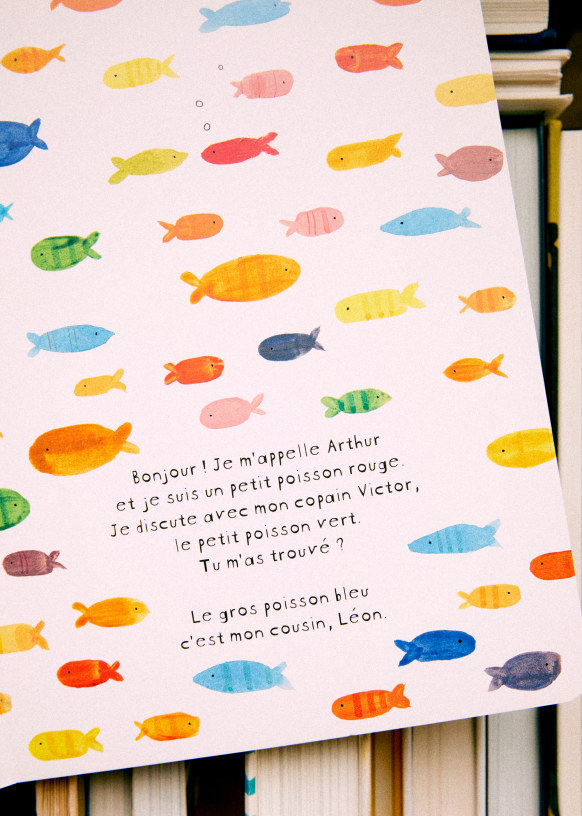 Bonjour ! Je m'appelle Arthur
et je suis un petit poisson rouge.
Je discute avec mon copain Victor,
le petit poisson vert.
Tu m'as trouvé ?
Le gros poisson bleu
c'est mon cousin, Léon.